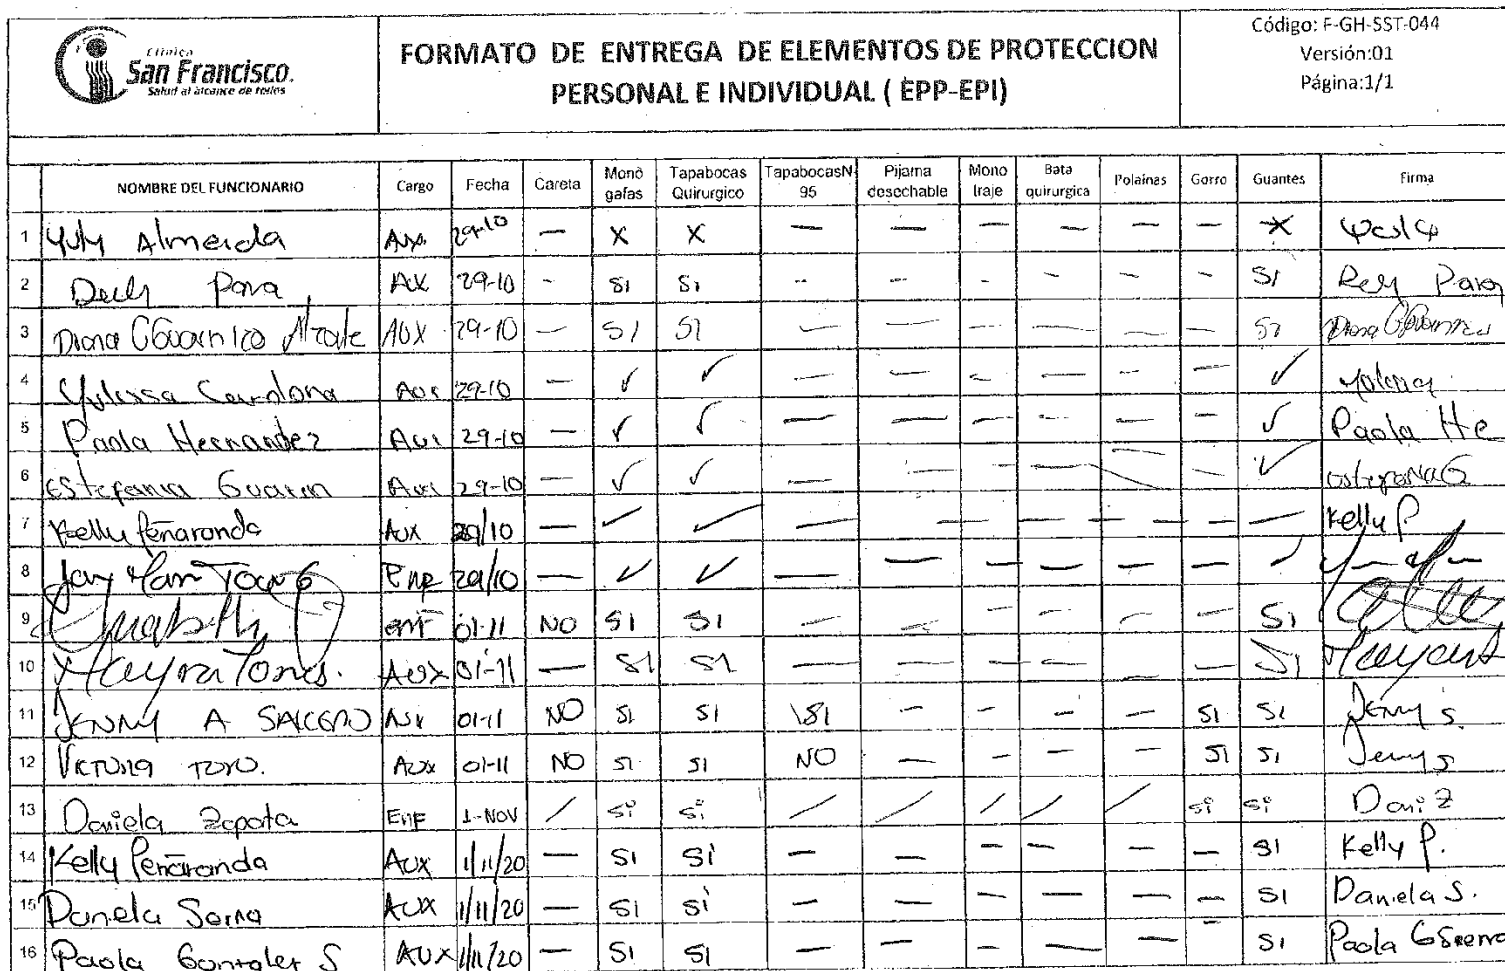 Clínica
San Francisco.
Salud al alcance de todos
FORMATO DE ENTREGA DE ELEMENTOS DE PROTECCION
PERSONAL E INDIVIDUAL ( EPP-EPI)
Código: F-GH-SST-044
Versión:01
Página:1/1
NOMBRE DEL FUNCIONARIO Cargo Fecha Careta Mono gafas Tapabocas Quirurgico TapabocasN 95 Pijama desechable Mono traje Bata quirurgica Polainas Gorro Guantes Firma
1 Yuly Almeida Aux. 29-10 — X X — — — — — — X
2 AUX 29-10 - SI SI - - - - - - SI
3 Diana Guarnizo Alzate AUX 29-10 — SI SI — — — — — — SI
4 Yulissa Cardona Aux 29-10 — ✓ ✓ — — — — — — ✓
5 Paola Hernandez Aux 29-10 — ✓ ✓ — — — — — — ✓ Paola He
6 Estefania Guarin Aux 29-10 — ✓ ✓ — — — — — ✓ Estefania G
7 Kelly Peñaranda AUX 29/10 — ✓ ✓ — — — — — — — Kelly P
8 Enf 29/10 — ✓ ✓ — — — — — — ✓
9 enf 01-11 NO SI SI — — — — — — SI
10 Mayra Torres. Aux 01-11 — SI SI — — — — — — SI
11 JENNY A SALCEDO Aux 01-11 NO SI SI SI — — — — SI SI Jenny S.
12 VICTORIA TORO. Aux 01-11 NO SI SI NO — — — — SI SI Jenny S
13 Daniela Zapata Enf 1-NOV / Si Si / / / / / Si Si Dani Z
14 Kelly Peñaranda AUX 1/11/20 — SI SI — — — — — — SI Kelly P.
15 Daniela Serna AUX 1/11/20 — SI SI — — — — — — SI Daniela S.
16 Paola Gonzalez S AUX 1/11/20 — SI SI — — — — — — SI Paola